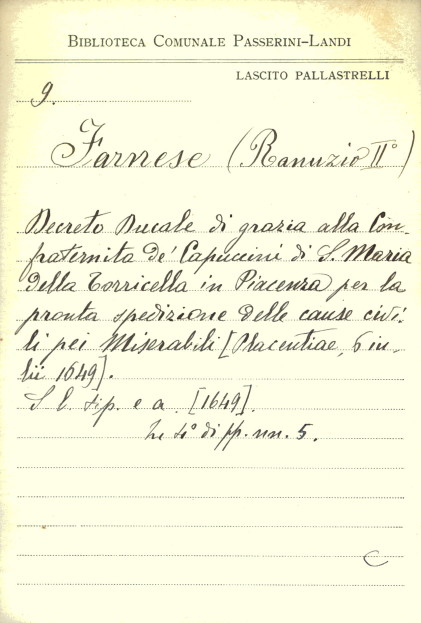 BIBLIOTECA COMUNALE PASSERINI-LANDI
LASCITO PALLASTRELLI
9.
Farnese (Ranuzio II°)
Decreto Ducale di grazia alla Con-
fraternita de' Capuccini di S. Maria
della Torricella in Piacenza per la
pronta spedizione delle cause civi-
li pei Miserabili [Placentiae, 6 iu-
lii 1649].
S. l. tip. e a. [1649].
In 4° di pp. nn. 5.
C